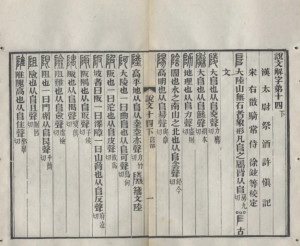 說文解字弟十四下
漢太尉祭酒許慎記
宋右散騎常侍徐鉉等校定
𨸏大陸山無石者象形凡𨸏之屬皆从𨸏房九切古
文
陵大𨸏也从𨸏夌聲力膺切
大𨸏也从𨸏鯀聲胡本切
阞地理也从𨸏力聲盧則切
陰闇也水之南山之北也从𨸏侌聲於今切
陽高明也从𨸏昜聲與章切
說文十四下
陸高平地从𨸏从坴坴亦聲力竹切籒文陸
阿大陵也一曰曲𨸏也从𨸏可聲烏何切
陂阪也一曰沱也从𨸏皮聲彼為切
阪坡者曰阪一曰澤障一曰山脅也从𨸏反聲府遠切
陬阪隅也从𨸏取聲子侯切
隅陬也从𨸏禺聲噳俱切
險阻難也从𨸏僉聲虛檢切
限阻也一曰門榍从𨸏艮聲乎簡切
阻險也从𨸏且聲側呂切
陮陮隗高也从𨸏隹聲都辠切